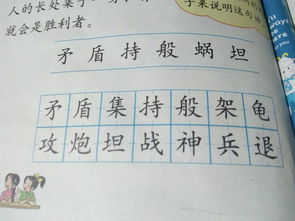 人的长处集于一身,
就会是胜利者。
子来说明这句话
矛盾持般蜗坦
矛盾集持般架龟
攻炮坦战神兵退